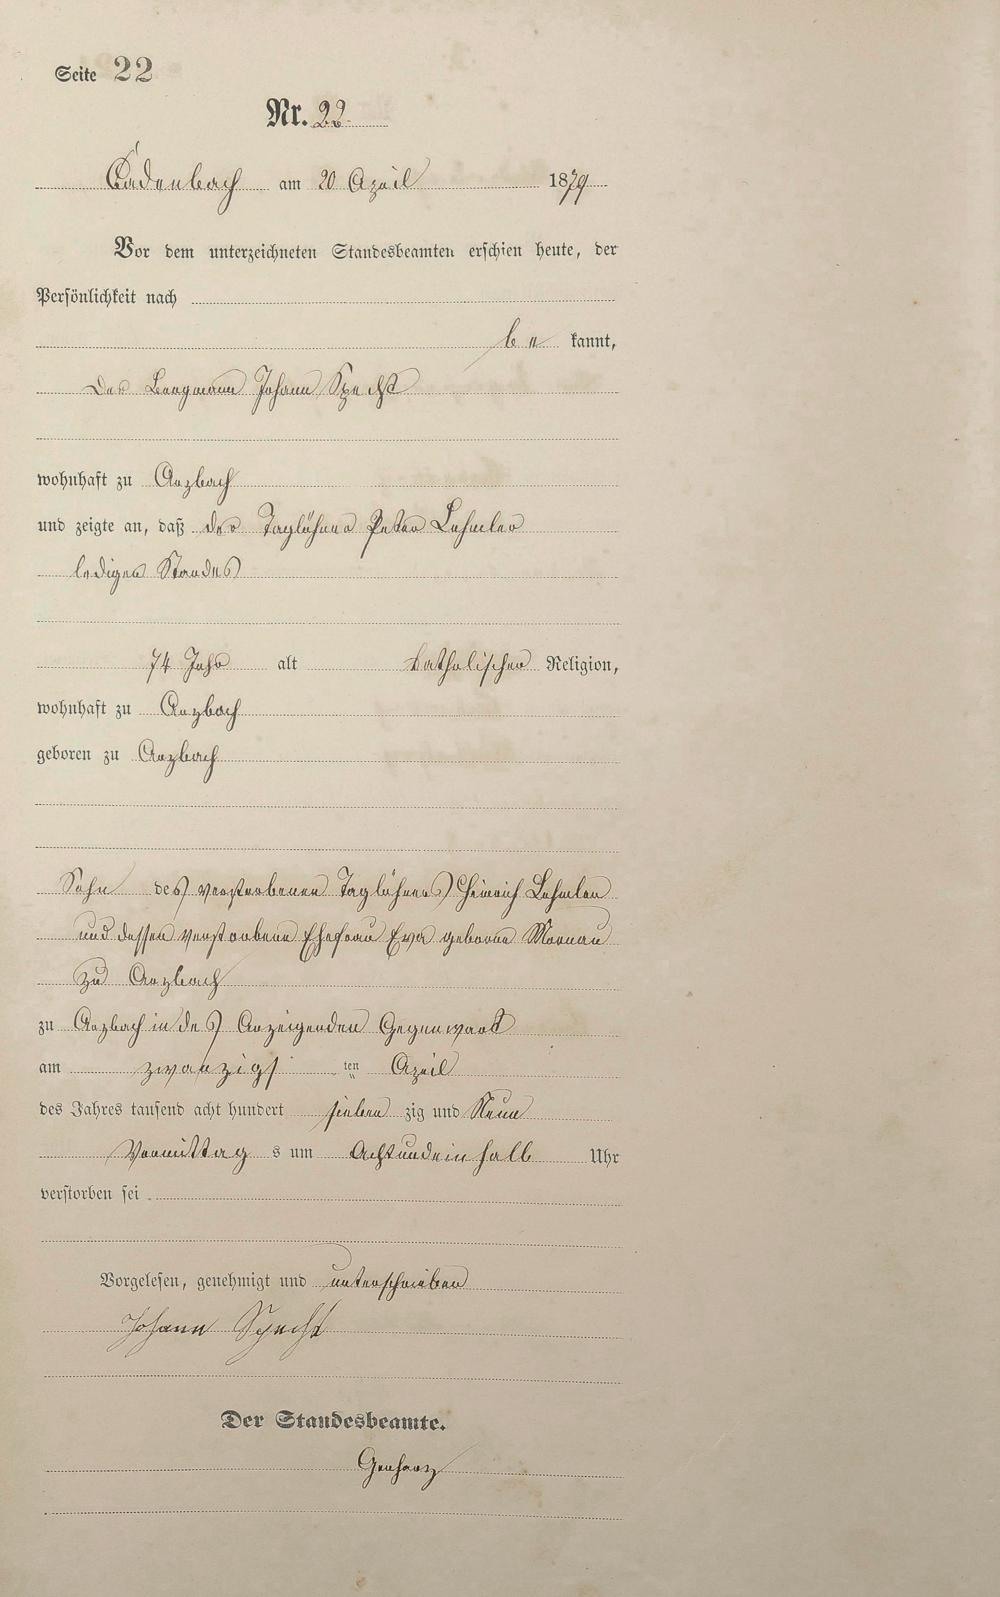 Seite 22
Nr. 22
Cadenbach am 20 April 1879
Vor dem unterzeichneten Standesbeamten erschien heute, der
Persönlichkeit nach
be kannt,
Der Bergmann Johann Specht
wohnhaft zu Arzbach
und zeigte an, daß der Taglöhner Peter Lehmler
lediges Standes
74 Jahr alt katholischer Religion,
wohnhaft zu Arzbach
geboren zu Arzbach
Sohn des verstorbenen Taglöhners Heinrich Lehmler
und dessen verstorbene Ehefrau Eva geborne
zu Arzbach
zu Arzbach in des Anzeigenden Gegenwart
am zwanzigs ten April
des Jahres tausend acht hundert sieben zig und Neun
Vormittag s um Achtundeinhalb Uhr
verstorben sei
Vorgelesen, genehmigt und unterschrieben
Johann Specht
Der Standesbeamte.
Gerharz